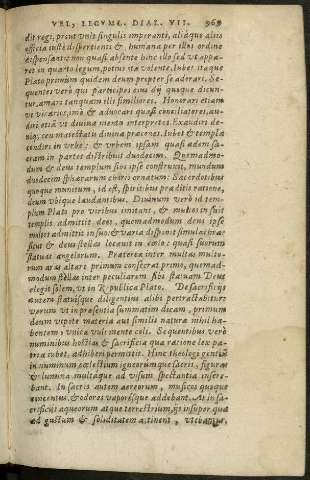 VEL, LEGVM. DIAL. VII. 969
dit regi, prout vnicè singulis imperanti, aliásque alijs
officia iustè dispertienti & humana per illos ordine
dispensanti: non quasi absente hinc illo sed vt appa-
ret in quarto legum, potius ita volente. Iubet itaque
Plato primùm quidem deum propter se adorari. Se-
quentes verò qui participes eius dij quoque dicun-
tur, amari tanquam illi similiores. Honorari etiam
vt vicarios, imò & aduocari quasi conciliatores, au-
diri etiã vt diuinæ mentis interpretes. Exaudiri de-
niq; ceu maiestatis diuinæ præcones. Iubet & templa
condiri in vrbe: & vrbem ipsam quasi ædem sa-
cram in partes distribui duodecim. Quemadmo-
dum & deus templum sibi ipse construxit, mundum
duodecim sphærarum chôris ornatum. Sacerdotibus
quoque munitum, id est, spiritibus præditis ratione,
deum vbique laudantibus. Diuinum verò id tem-
plum Plato pro viribus imitans, & multos in suis
templis admittit deos, quemadmodum deus ipse
multos admittit in suo: & varia disponit simulachra
sicut & deus stellas locauit in cœlo: quasi suorum
statuas angelorum. Præterea inter multas multo-
rum aras altare primum consecrat primo, quemad-
modum stellas inter peculiarem sibi statuam Deus
elegit solem, vt in Republica Plato. De sacrificijs
autem statuisque diligentius alibi pertractabitur
verùm vt in præsentia summatim dicam, primum
deum vtpote materia aut similis natura nihil ha-
bentem, vnica vult mente coli. Sequentibus verò
numinibus hostias & sacrificia qua ratione lex pa-
tria iubet, adhiberi permittit. Hinc theologi gentium
in numinum cœlestium igneorumque sacris, figuras
& lumina multáque ad visum spectantia insere-
bant. In sacris autem aereorum, musicos quoque
concentus, & odores vaporésque addebant. At in sa-
crificijs aqueorum atque terrestrium, ijs insuper, quæ
ad gustum & soliditatem attinent, vtebantur,